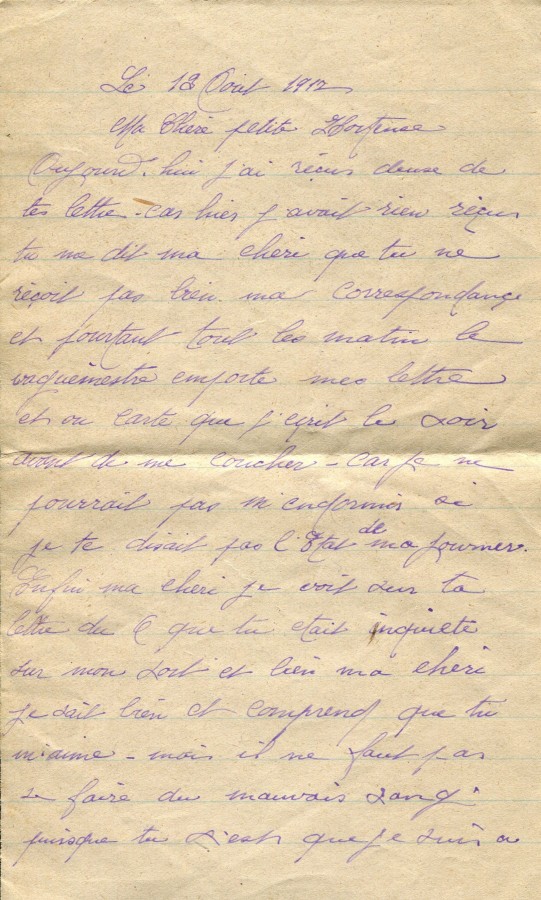 Le 13 Out 1917
Ma Chère petite Hortense
Aujourd'hui j'ai reçus deuse de
tes lettre - cas hier j'avait rien reçus
tu me dit ma cheri que tu ne
reçoit pas bien ma correspondance
et pourtant tout les matin le
vaguemestre emporte mes lettre
et ou carte que j'écrit le soir
avant de me coucher - car je ne
pourrait pas m'endormir si
je te disait pas l'Etat de ma journer.
Enfin ma cheri je voit sur ta
lettre du 6 que tu etait inquiete
sur mon sort et bien ma cheri
je sait bien et comprend que tu
m'aime - mais il ne faut pas
se faire du mauvais sang
puisque tu s'est que je suis a